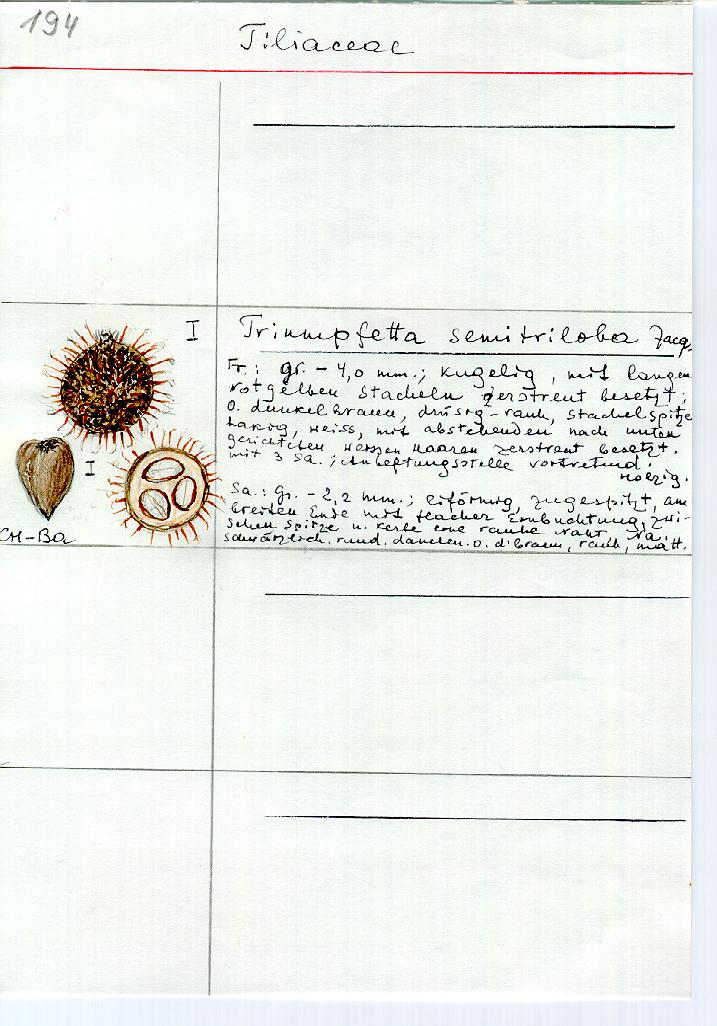 194
Tiliaceae
I
Triumpfetta semitriloba Jacq.
Fr.: gr. - 4,0 mm.; kugelig, mit langen
rotgelben Stacheln zerstreut besetzt;
O. dunkelbraun, drüsig-rauh, Stachelspitze
hakig, weiss, mit abstehenden nach unten
gerichteten weissen Haaren zerstreut besetzt.
mit 3 Sa.; Anheftungsstelle vortretend.
holzig.
I
Sa.: Gr. - 2,2 mm.; eiförmig, zugespitzt, am
breiten Ende mit flacher Einbuchtung, zwi-
schen Spitze u. Kerbe eine rauhe Naht, Na.
schwärzlich, rund, daneben. O. d'braun, rauh, matt.
CH-Ba